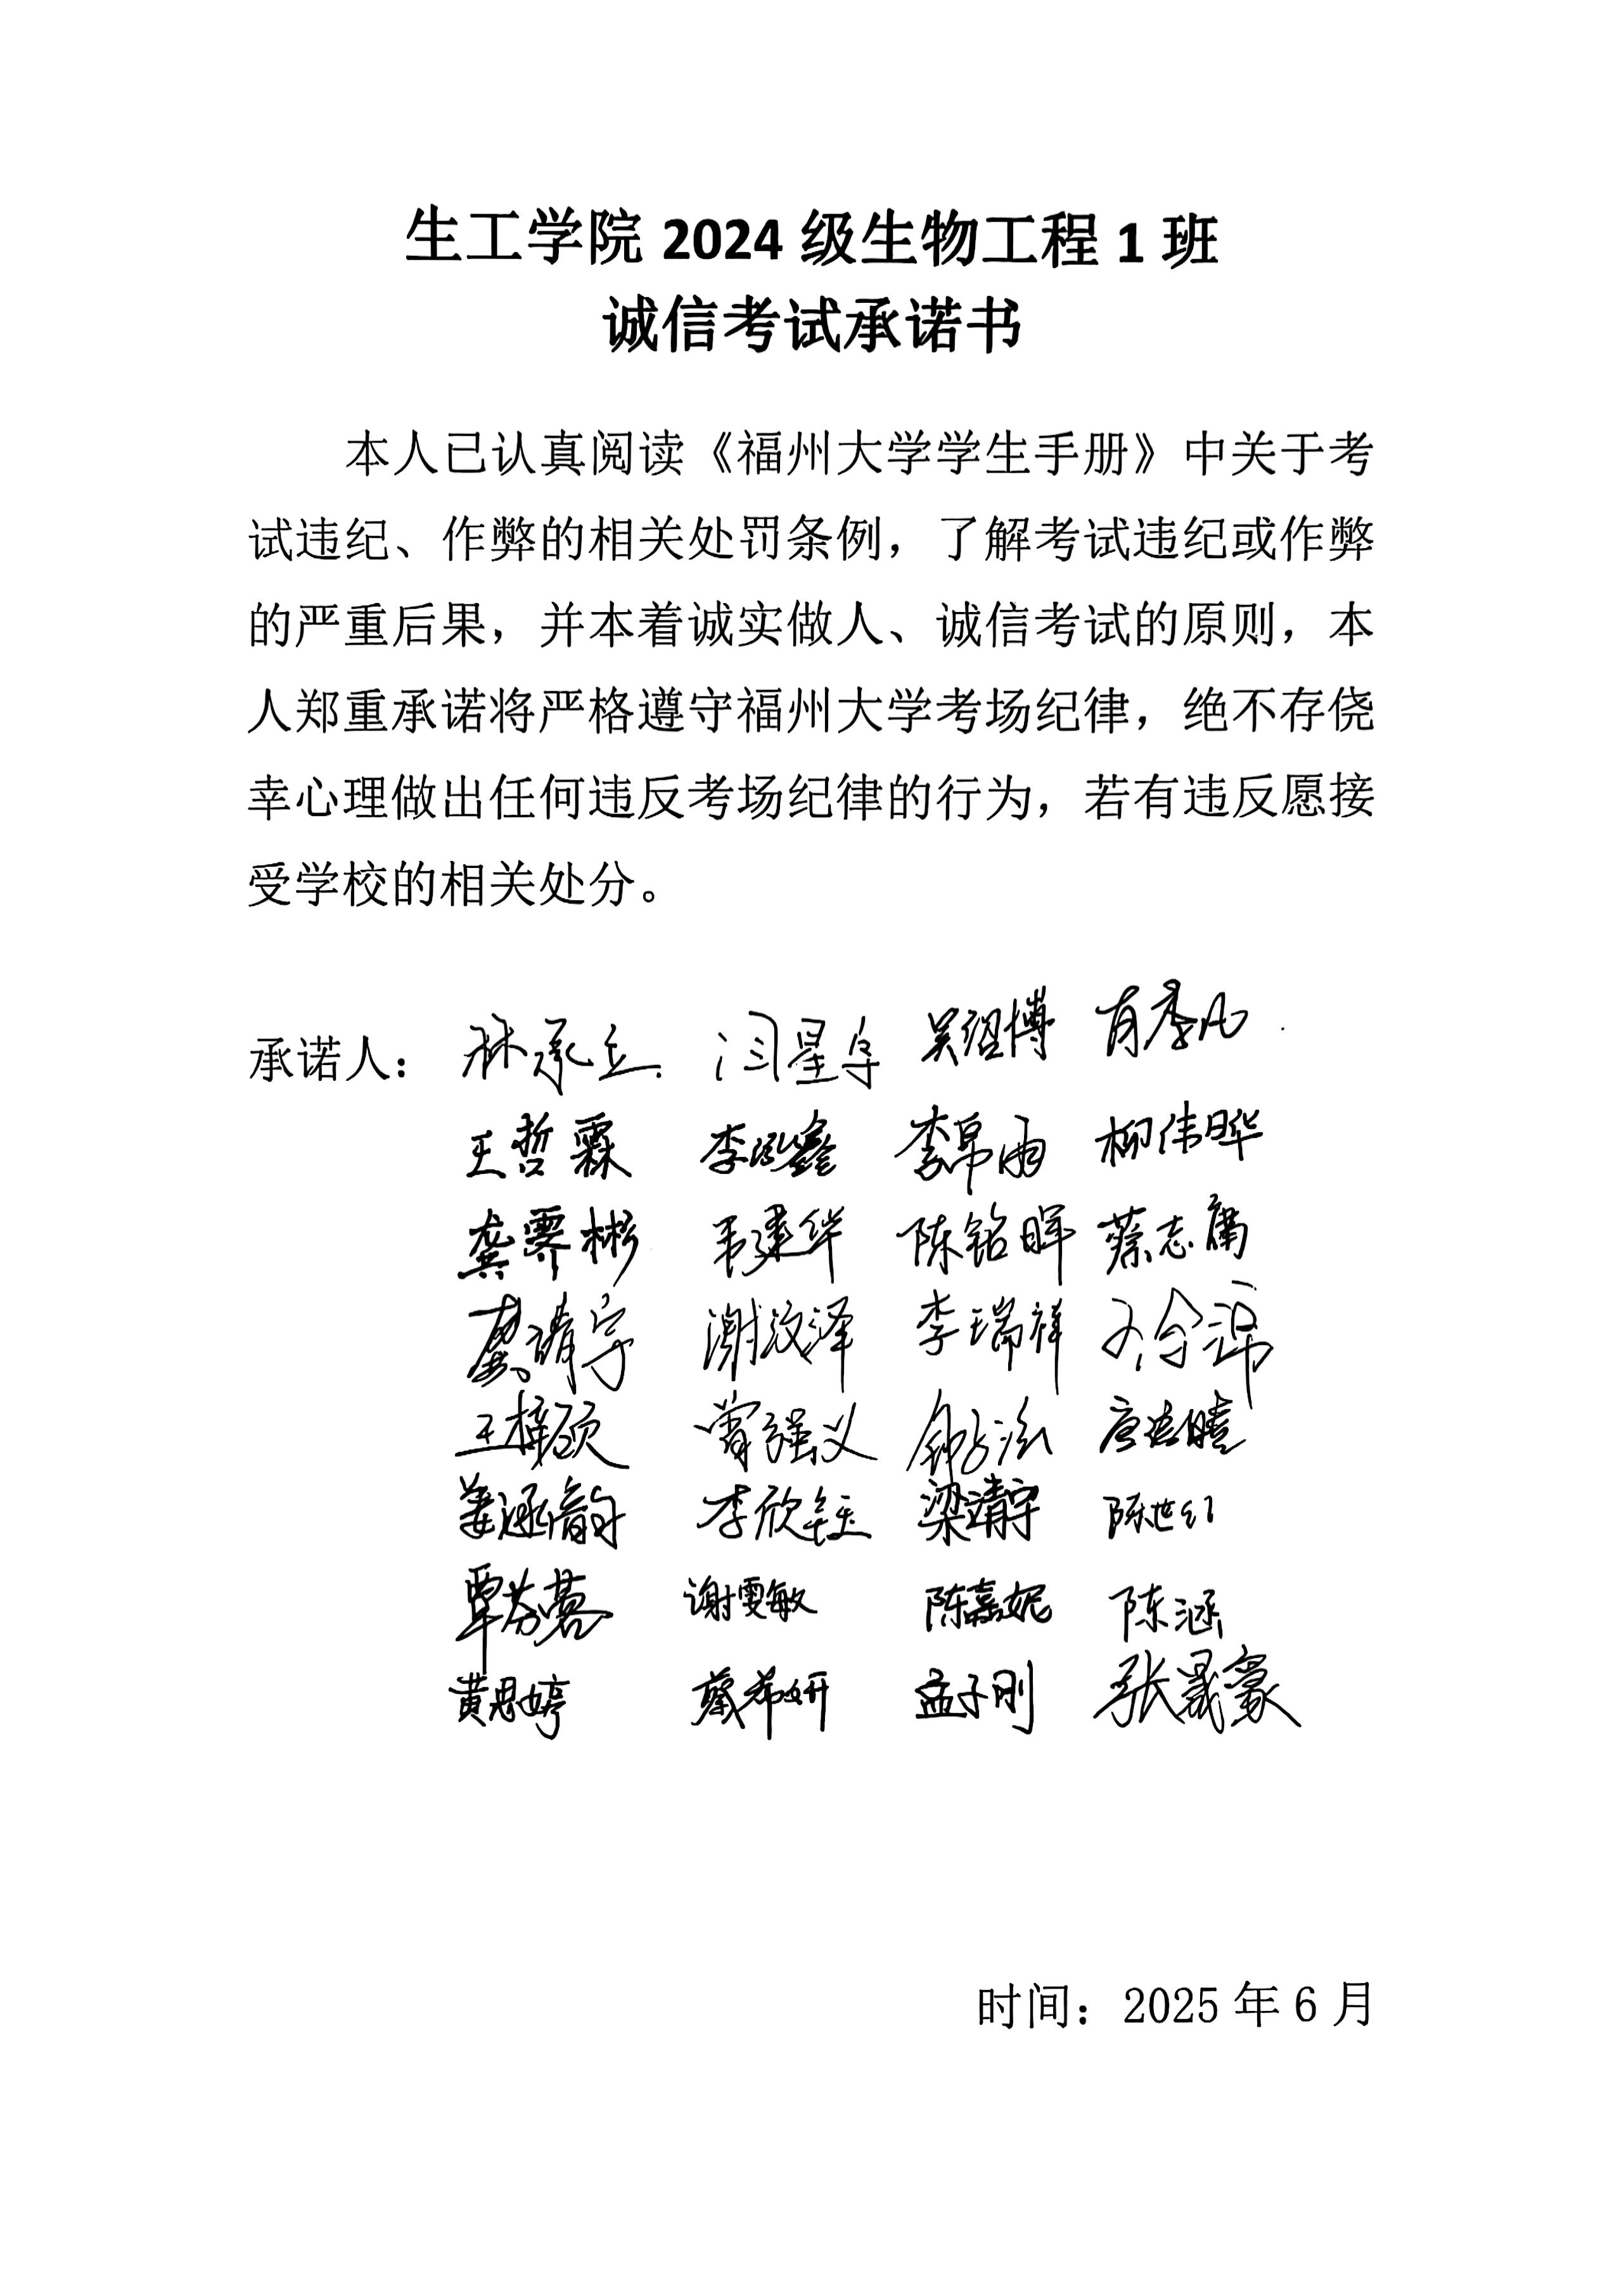 生工学院 2024 级生物工程 1 班
诚信考试承诺书
本人已认真阅读《福州大学学生手册》中关于考
试违纪、作弊的相关处罚条例，了解考试违纪或作弊
的严重后果，并本着诚实做人、诚信考试的原则，本
人郑重承诺将严格遵守福州大学考场纪律，绝不存侥
幸心理做出任何违反考场纪律的行为，若有违反愿接
受学校的相关处分。
承诺人：林承立 闫星阜 吴祖博 肖季凡
王哲霖 李泓鑫 李帛雨 柳伟晔
龚霁彬 韦建华 陈铭晖 蔡志
靖宇 谢汶泽 李瑞祥
王梓硕 曾强义 唐 晴
姜涵韵 李欣钰 梁靖宇 陈世红
覃芬蓉 谢雯敏 陈嘉妮 陈涵
黄思婷 蔡希妍 孟子刚 张晟豪
时间：2025 年 6 月